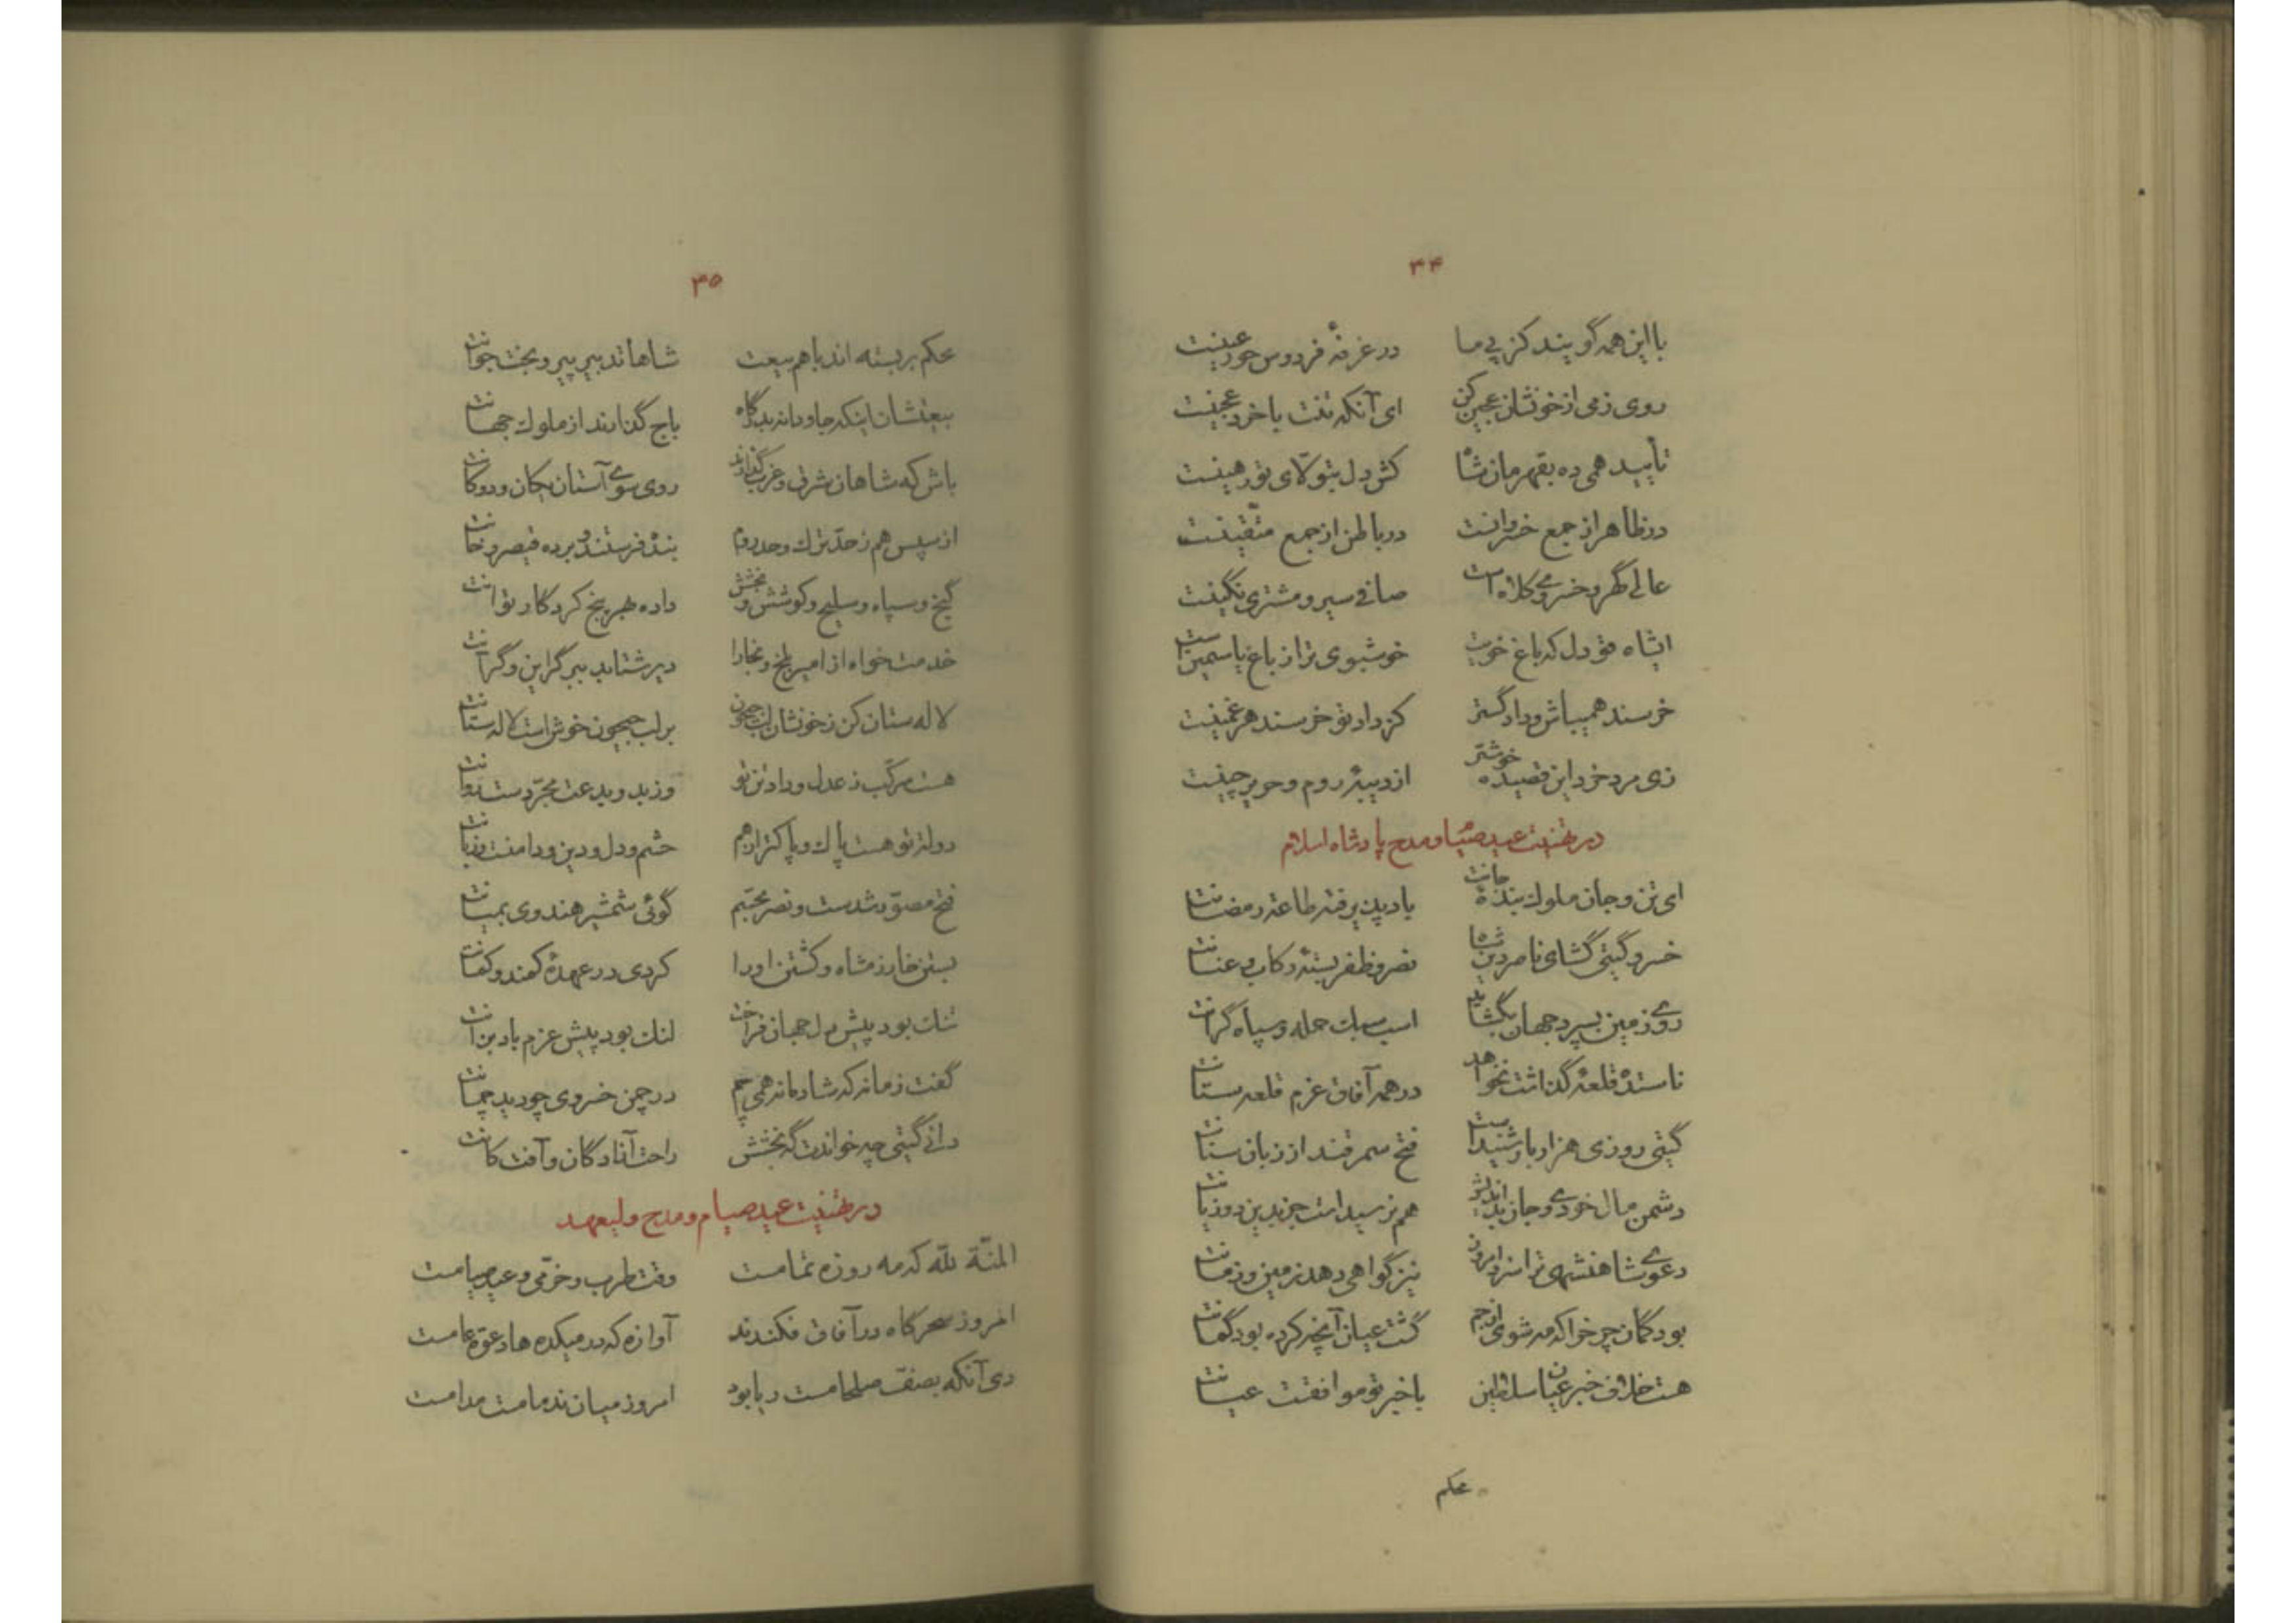 ۳۴
با این همه گویند کز پی ما در غرفهٔ فردوس حور عینست
روی زمی از خونشان عجین کن ای آنکه تنت باخرد عجینست
تأیید همی ده بقهرمان شاه کش دل بتولّای تو رهینست
در ظاهر از جمع خسروانست در باطن از جمع متّقینست
عالی گهر و خسروی کلاه است صافی سیر و مشتری نگینست
انشاه قوی دل که باغ خویت خوشبوی تر از باغ یاسمین است
خرسند همیباش و داد گستر کز داد تو خرسند هر غمینست
زی مرد خرد این قصیده خوشتر از دیبهٔ روم و حریر چینست
در تهنیت عید صیام و مدح پادشاه اسلام
ای تن و جان ملوک بندهٔ جانت باد پذیرفته طاعت رمضانت
خسرو گیتی گشای ناصر دین شاه نصر و ظفر بستهٔ رکاب و عنانت
روی زمین بسپرد جهان بگشاید اسب سبک حمله و سپاه گرانت
ناستده قلعهٔ گذاشت نخواهد در همه آفاق عزم قلعه ستانت
گیتی روزی هزار بار شنیدست فتح سمرقند از زبان سنانت
دشمن مال خودی و جان بداندیش هم نرسیدست جز بدین دو زیانت
دعوی شاهنشهی تراسزد امروز نیز گواهی دهد زمین و زمانت
بود گمان چرخ را که مه شوی از جم گشت عیان آنچه کرده بود گمانت
هست خلاف خبر عیان سلاطین با خبر تو موافقت عیانت
محکم
۳۵
محکم بربسته اند با هم بیعت شاها تدبیر پیر و بخت جوانت
بیعتشان اینکه جاودانه بدرگاه باج گذارند از ملوک جهانت
باش که شاهان شرق و غرب گذارند روی سوی آستان یکان و دوکانت
از سپس هم ز حدّ ترک و حد روم بنده فرستند و برده قیصر و خانت
گنج و سپاه و سلیح و کوشش و بخشش داده بهر پنج کردگار توانت
خدمت خواه از امیر بلخ و بخارا دیر شتابد ببر گراین و گرآنت
لاله ستان کن ز خونشان لب جیحون بر لب جیحون خوش است لاله ستانت
هست مرکّب ز عدل و داد تن تو وز بد و بدعت مجرّد ست روانت
دولت تو هست پاک و پاکتر از هم چشم و دل و دین و دامنت و زبانت
فتح مصوّر شدست و نصر مجسّم گوئی شمشیر هندوی بمیانت
بستن خارزمشاه و کشتن او را کردی در عهدهٔ کمند و کمانت
تنک بود پیش دل جهان فراخت لنک بود پیش عزم باد بزانت
گفت زمانه که شادمانه همی چم در چمن خسروی چو دید چمانت
دانی گیتی چه خواندت گه بخشش راحت آزادگان و آفت کانت
در تهنیت عید صیام و مدح ولیعهد
المنّة لله که مه روزه تمامست وقت طرب و خرّمی و عید صیامست
امروز سحرگاه در آفاق فکندند آوازه که در میکده ها دعوة عامست
دی آنکه بصفّ صلحا مست ریا بود امروز میان ندما مست مدامست